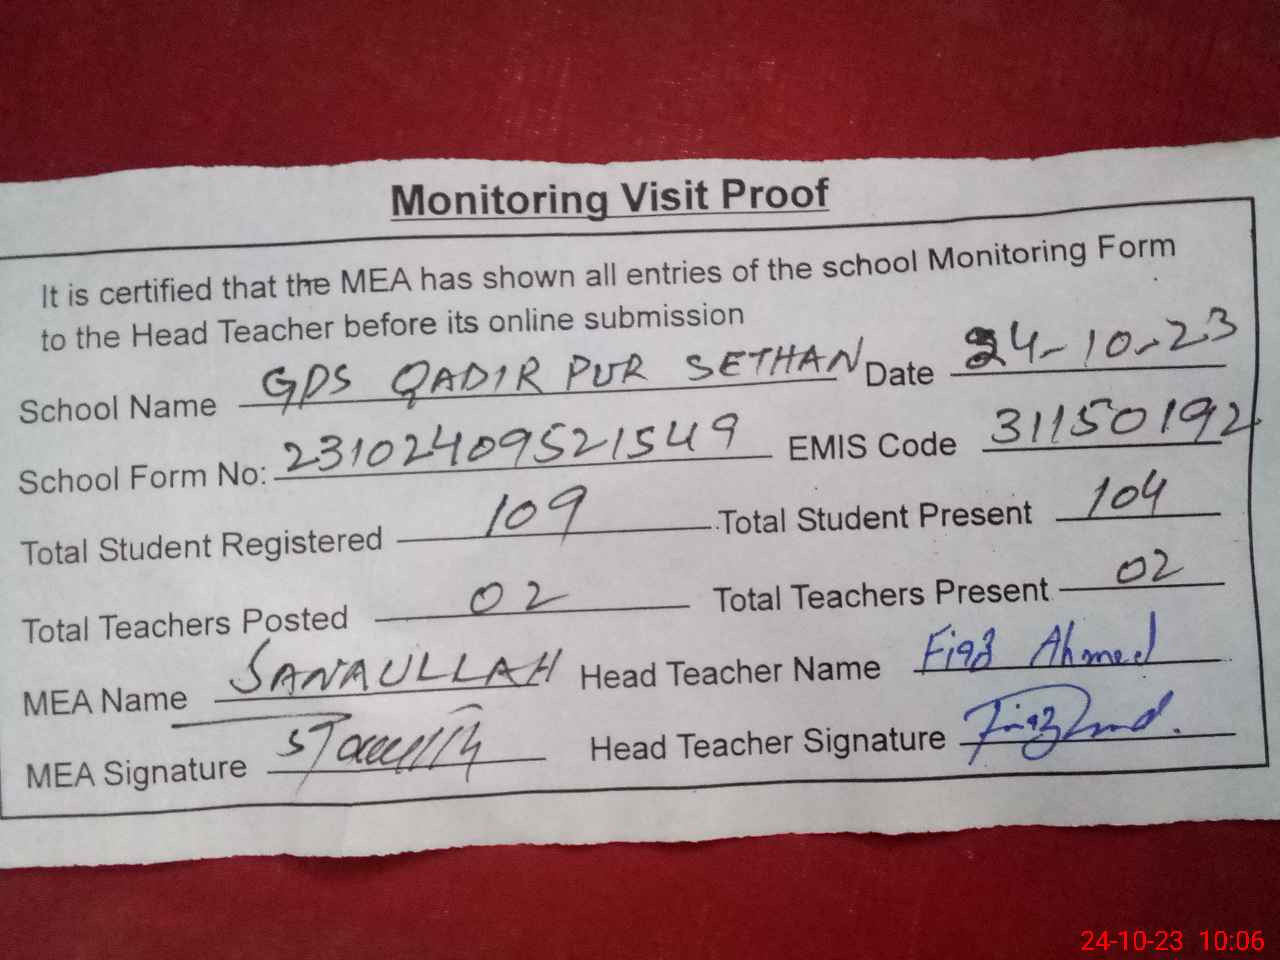 Monitoring Visit Proof
It is certified that the MEA has shown all entries of the school Monitoring Form
to the Head Teacher before its online submission
School Name GPS QADIR PUR SETHAN Date 24-10-23
School Form No: 23102409521549 EMIS Code 31150192
Total Student Registered 109 Total Student Present 104
Total Teachers Posted 02 Total Teachers Present 02
MEA Name SANAULLAH Head Teacher Name Fiaz Ahmed
MEA Signature Head Teacher Signature
24-10-23 10:06